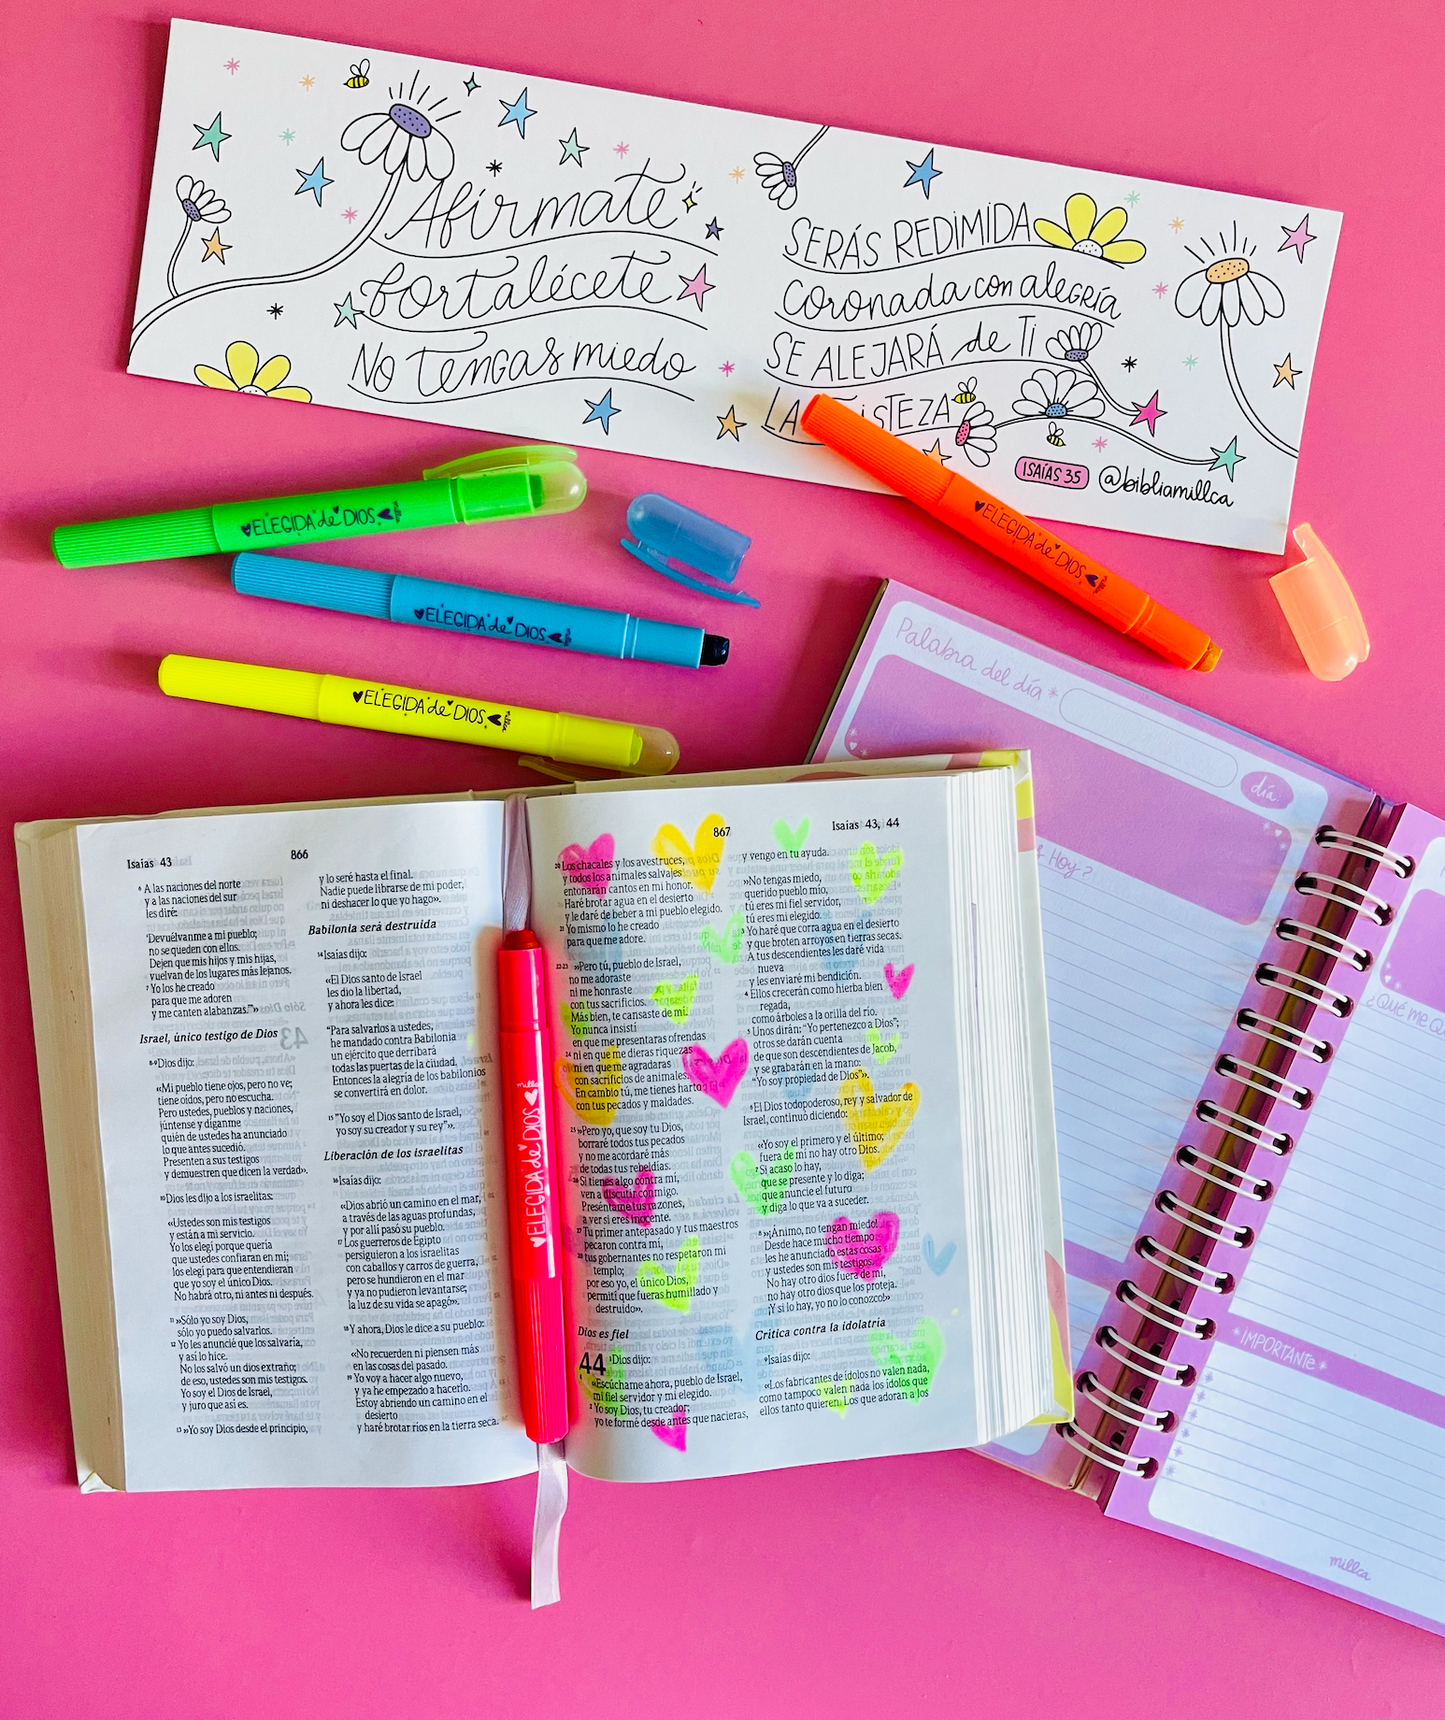 Afírmate
fortalécete
No tengas miedo
SERÁS REDIMIDA
coronada con alegría
SE ALEJARÁ de TI
LA
ISAÍAS 35 @bibliamillca
ELEGIDA de DIOS
ELEGIDA de DIOS
ELEGIDA de DIOS
ELEGIDA de DIOS
Palabra del día
día
Hoy?
IMPORTANTE
millca
Isaías 43
866
⁶ A las naciones del norte
y a las naciones del sur
les diré:
"Devuélvanme a mi pueblo;
no se queden con ellos.
Dejen que mis hijos y mis hijas,
vuelvan de los lugares más lejanos.
⁷ Yo los he creado
para que me adoren
y me canten alabanzas."»
Israel, único testigo de Dios
⁸⁻⁹Dios dijo:
«Mi pueblo tiene ojos, pero no ve;
tiene oídos, pero no escucha.
Pero ustedes, pueblos y naciones,
júntense y díganme
quién de ustedes ha anunciado
lo que antes sucedió.
Presenten a sus testigos
y demuestren que dicen la verdad».
¹⁰Dios les dijo a los israelitas:
«Ustedes son mis testigos
y están a mi servicio.
Yo los elegí porque quería
que ustedes confiaran en mí;
los elegí para que entendieran
que yo soy el único Dios.
No habrá otro, ni antes ni después.
¹¹ »Sólo yo soy Dios,
sólo yo puedo salvarlos.
¹² Yo les anuncié que los salvaría,
y así lo hice.
No los salvó un dios extraño;
de eso, ustedes son mis testigos.
Yo soy el Dios de Israel,
y juro que así es.
¹³ »Yo soy Dios desde el principio,
y lo seré hasta el final.
Nadie puede librarse de mi poder,
ni deshacer lo que yo hago».
Babilonia será destruida
¹⁴Isaías dijo:
«El Dios santo de Israel
les dio la libertad,
y ahora les dice:
"Para salvarlos a ustedes,
he mandado contra Babilonia
un ejército que derribará
todas las puertas de la ciudad.
Entonces la alegría de los babilonios
se convertirá en dolor.
¹⁵ "Yo soy el Dios santo de Israel,
yo soy su creador y su rey"».
Liberación de los israelitas
¹⁶Isaías dijo:
«Dios abrió un camino en el mar,
a través de las aguas profundas,
y por allí pasó su pueblo.
¹⁷ Los guerreros de Egipto
persiguieron a los israelitas
con caballos y carros de guerra,
pero se hundieron en el mar
y ya no pudieron levantarse;
¡la luz de su vida se apagó!».
¹⁸Y ahora, Dios le dice a su pueblo:
«No recuerden ni piensen más
en las cosas del pasado.
¹⁹ Yo voy a hacer algo nuevo,
y ya he empezado a hacerlo.
Estoy abriendo un camino en el
desierto
y haré brotar ríos en la tierra seca.
millca
ELEGIDA de DIOS
867
Isaías 43, 44
²⁰ Los chacales y los avestruces,
y todos los animales salvajes
entonarán cantos en mi honor.
Haré brotar agua en el desierto
y le daré de beber a mi pueblo elegido.
²¹ Yo mismo lo he creado
para que me adore.
²²⁻²³ »Pero tú, pueblo de Israel,
no me adoraste
ni me honraste
con tus sacrificios.
Más bien, te cansaste de mí.
Yo nunca insistí
en que me presentaras ofrendas
²⁴ ni en que me dieras riquezas
ni en que me agradaras
con sacrificios de animales.
En cambio tú, me tienes harto
con tus pecados y maldades.
²⁵ »Pero yo, que soy tu Dios,
borraré todos tus pecados
y no me acordaré más
de todas tus rebeldías.
²⁶ Si tienes algo contra mí,
ven a discutir conmigo.
Preséntame tus razones,
a ver si eres inocente.
²⁷ Tu primer antepasado y tus maestros
pecaron contra mí,
²⁸ tus gobernantes no respetaron mi
templo;
por eso yo, el único Dios,
permití que fueras humillado y
destruido».
Dios es fiel
44 ¹Dios dijo:
«Escúchame ahora, pueblo de Israel,
mi fiel servidor y mi elegido.
² Yo soy Dios, tu creador;
yo te formé desde antes que nacieras,
y vengo en tu ayuda.
»No tengas miedo,
querido pueblo mío,
tú eres mi fiel servidor,
tú eres mi elegido.
³ Yo haré que corra agua en el desierto
y que broten arroyos en tierras secas.
A tus descendientes les daré vida
nueva
y les enviaré mi bendición.
⁴ Ellos crecerán como hierba bien
regada,
como árboles a la orilla del río.
⁵ Unos dirán: "Yo pertenezco a Dios";
otros se darán cuenta
de que son descendientes de Jacob,
y se grabarán en la mano:
"Yo soy propiedad de Dios"».
⁶El Dios todopoderoso, rey y salvador de
Israel, continuó diciendo:
«Yo soy el primero y el último;
fuera de mí no hay otro Dios.
⁷ Si acaso lo hay,
que se presente y lo diga;
que anuncie el futuro
y diga lo que va a suceder.
⁸ »¡Ánimo, no tengan miedo!
Desde hace mucho tiempo
les he anunciado estas cosas
y ustedes son mis testigos.
No hay otro dios fuera de mí,
no hay otro dios que los proteja.
¡Y si lo hay, yo no lo conozco!»
Crítica contra la idolatría
⁹Isaías dijo:
«Los fabricantes de ídolos no valen nada,
como tampoco valen nada los ídolos que
ellos tanto quieren. Los que adoran a los